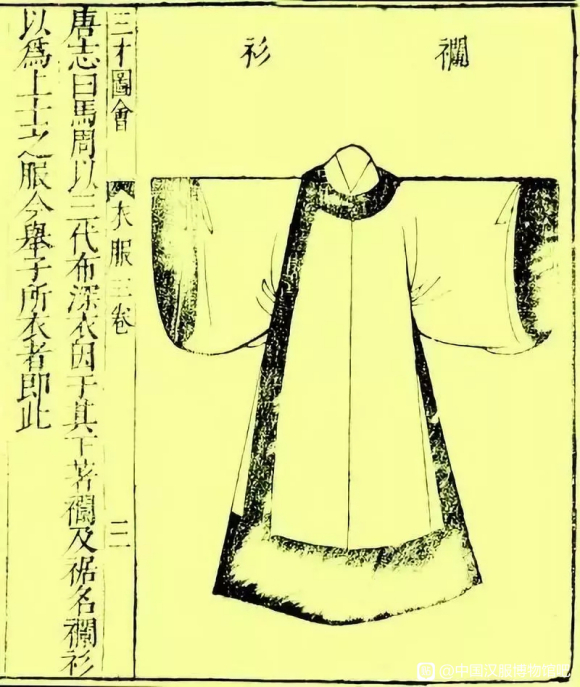 襴衫
三才圖會 衣服三卷
唐志曰馬周以三代布深衣因于其下著襴及裾名襴衫
以爲上士之服今舉子所衣者即此
@中国汉服博物馆